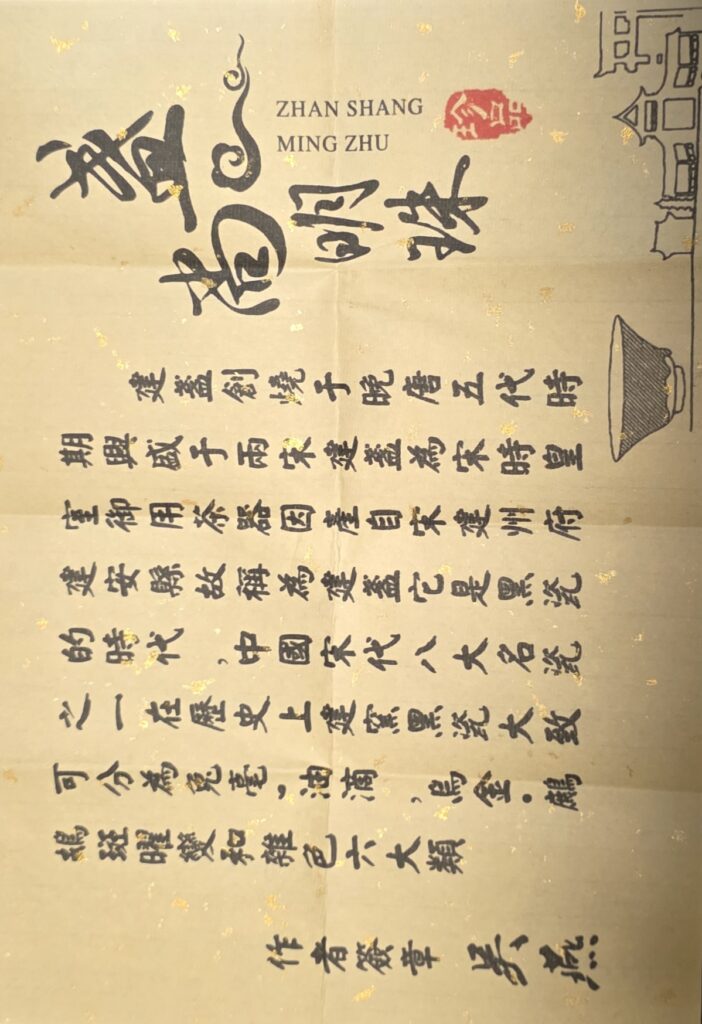 盞尚明珠
ZHAN SHANG
MING ZHU
珍品
建盞創燒于晚唐五代時
期興盛于兩宋建盞為宋時皇
室御用茶器因產自宋建州府
建安縣故稱為建盞它是黑瓷
的時代,中國宋代八大名瓷
之一在歷史上建窯黑瓷大致
可分為兔毫。油滴,烏金。鷓
鴣斑曜變和雜色六大類
作者簽章 吳燕